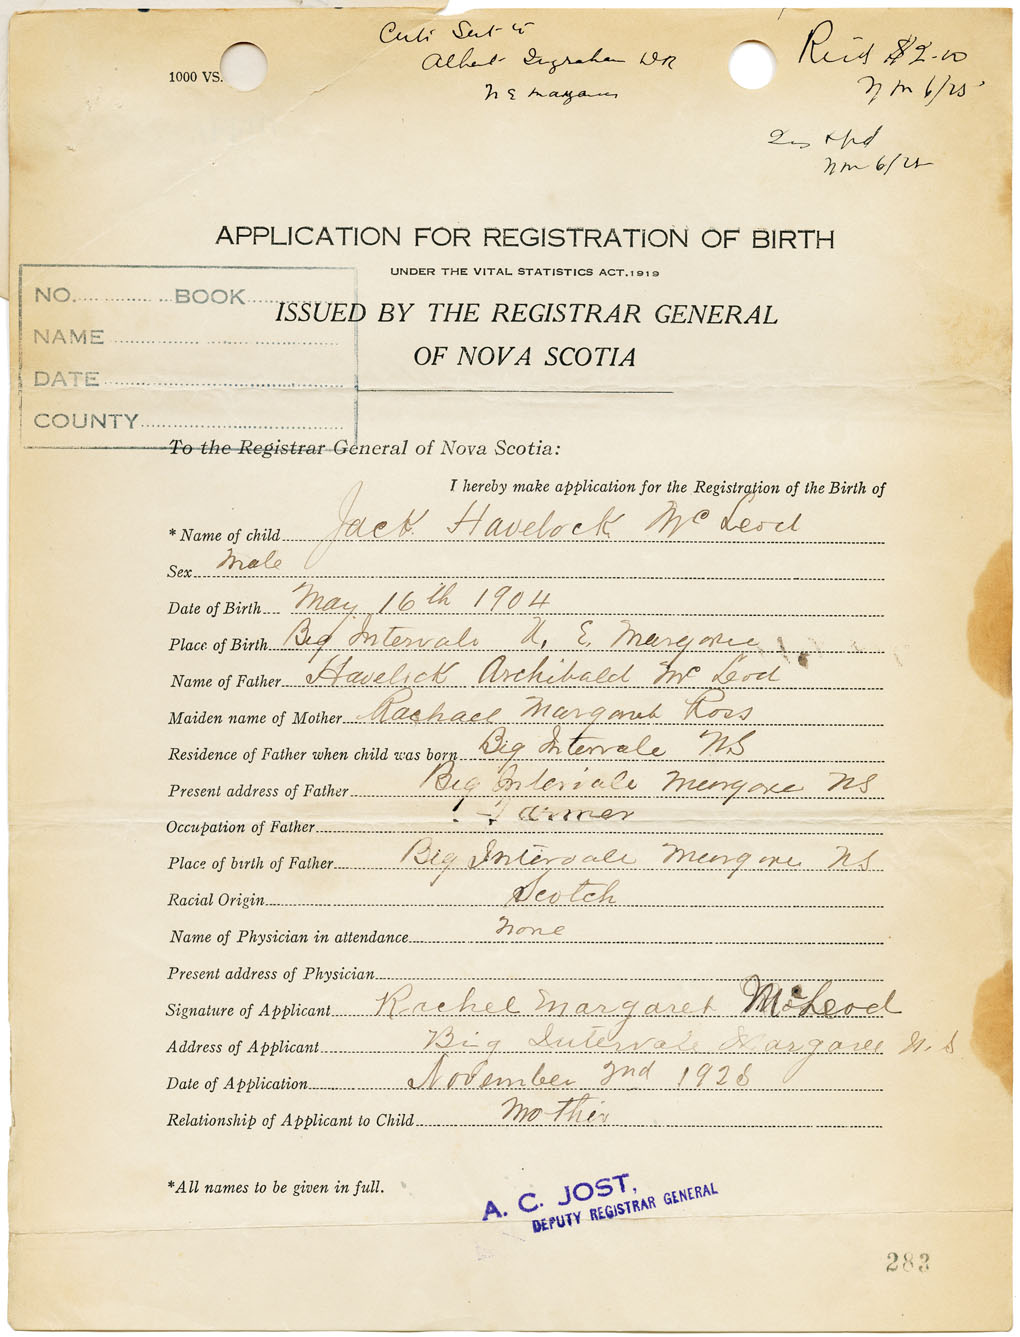 Certi Sent to
Albert Ingraham DR
N E Margaree
Rec'd $2.00
Nov 6/25
1000 VS.
Nov 6/25
APPLICATION FOR REGISTRATION OF BIRTH
UNDER THE VITAL STATISTICS ACT, 1919
ISSUED BY THE REGISTRAR GENERAL
OF NOVA SCOTIA
NO. BOOK
NAME
DATE
COUNTY
To the Registrar General of Nova Scotia:
I hereby make application for the Registration of the Birth of
*Name of child Jack Havelock McLeod
Sex Male
Date of Birth May 16th 1904
Place of Birth Big Intervale N. E. Margaree
Name of Father Havelick Archibald McLeod
Maiden name of Mother Rachael Margaret Ross
Residence of Father when child was born Big Intervale NS
Present address of Father Big Intervale Margaree NS
Occupation of Father Farmer
Place of birth of Father Big Intervale Margaree NS
Racial Origin Scotch
Name of Physician in attendance None
Present address of Physician
Signature of Applicant Rachel Margaret McLeod
Address of Applicant Big Intervale Margaree N.S
Date of Application November 2nd 1925
Relationship of Applicant to Child Mother
*All names to be given in full.
A. C. JOST,
DEPUTY REGISTRAR GENERAL
283